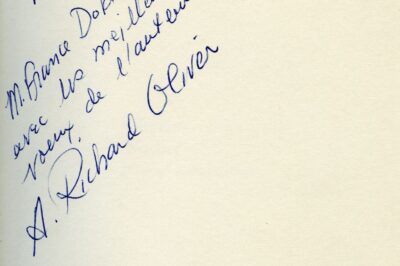 M. France Dok
avec les meille
voeux de l'auteur
A. Richard Oliver